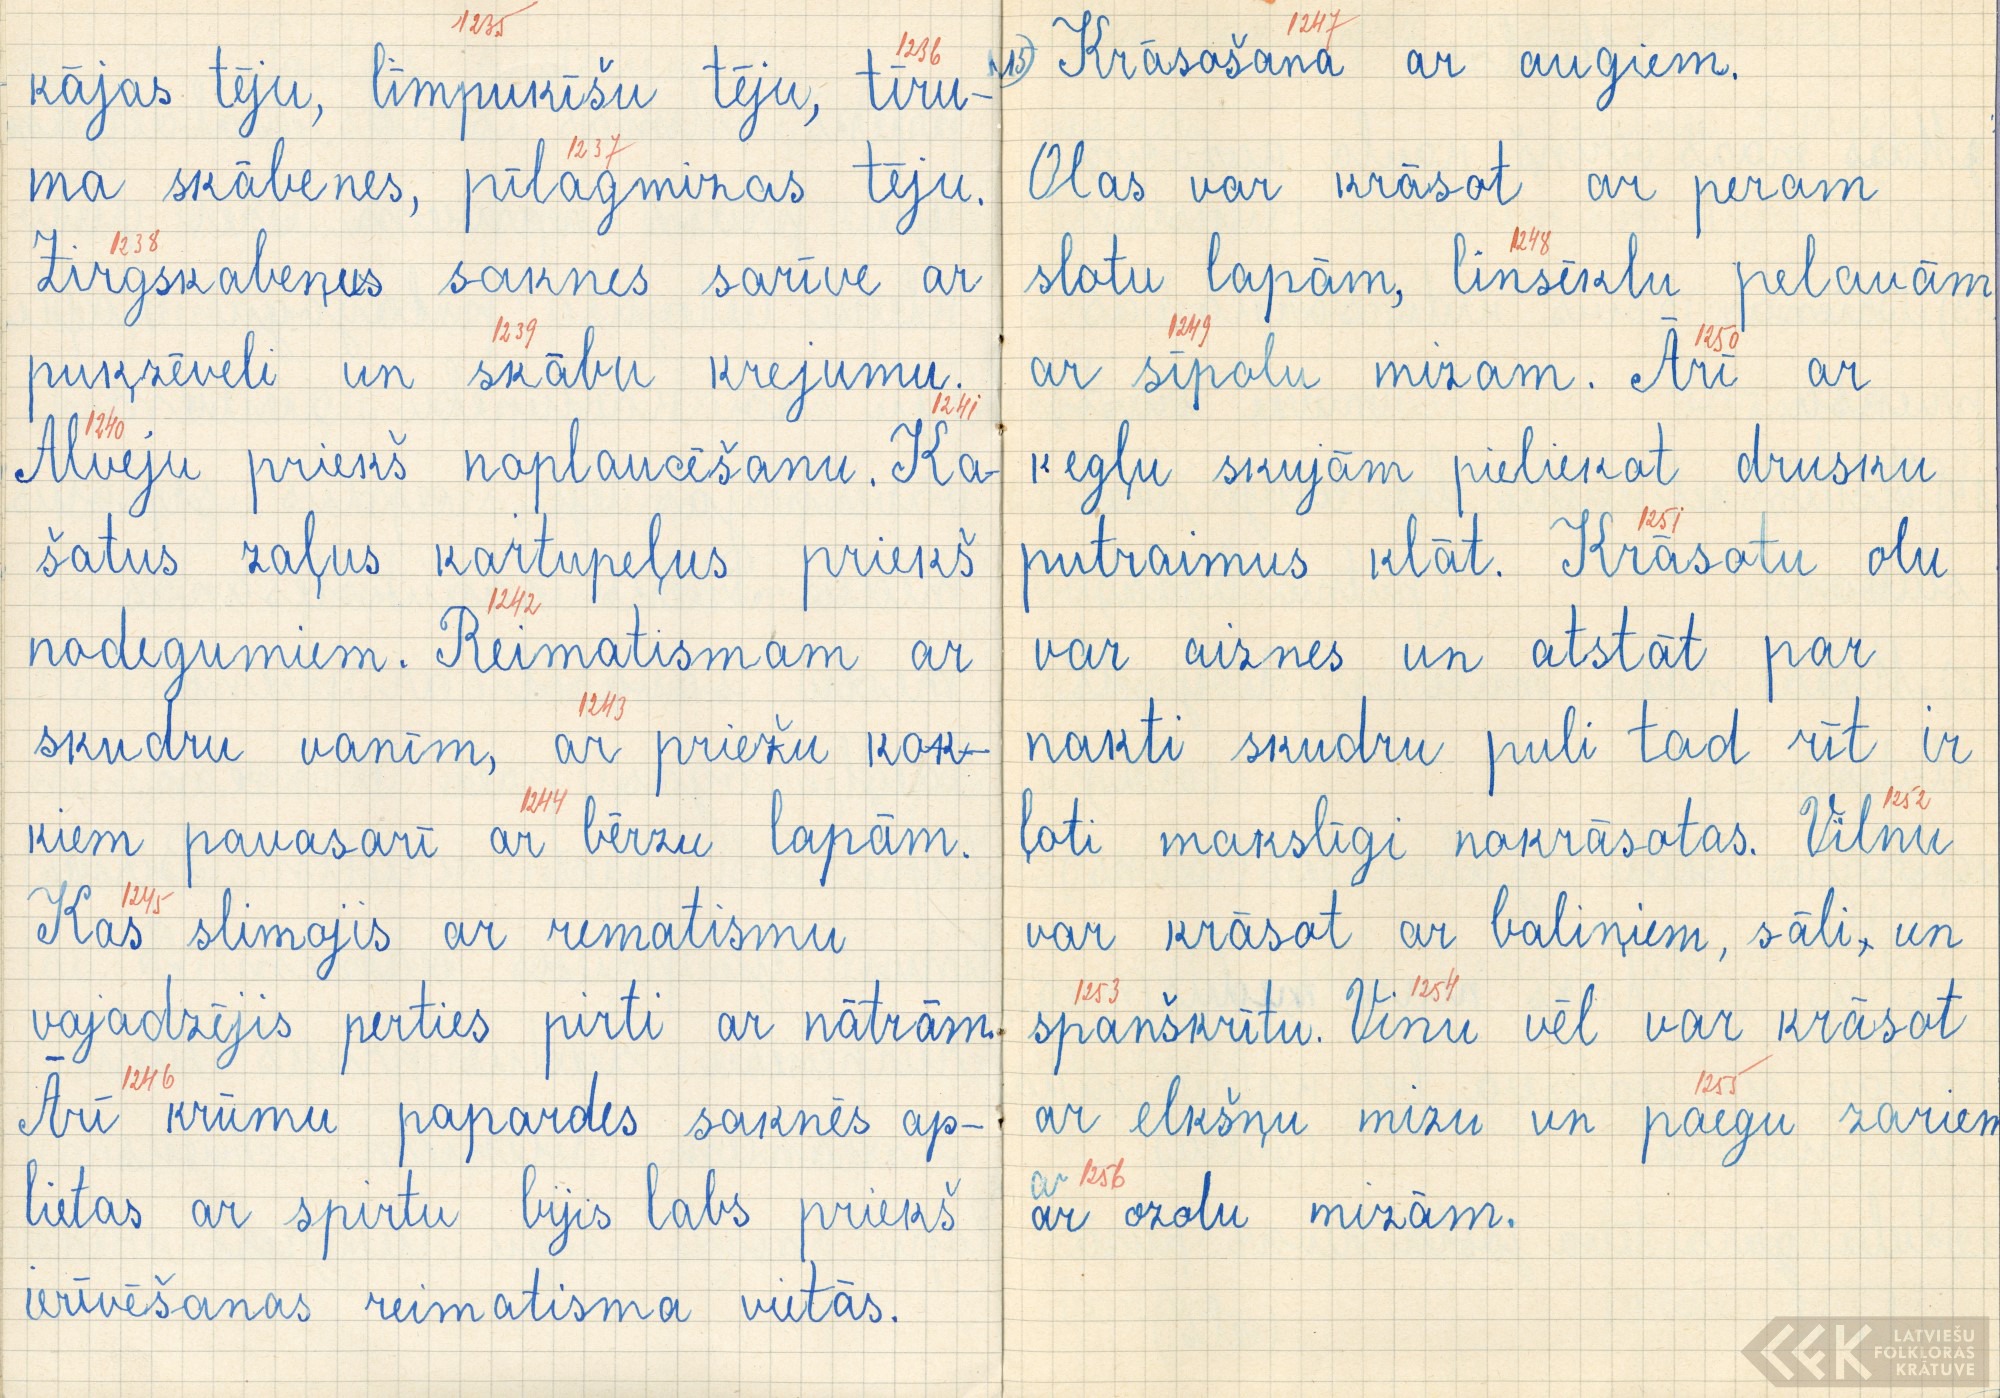 1235
1236
kājas tēju, līmpukīšu tēju, tīru-
1237
ma skābenes, pīlagmizas tēju.
1238
Zirgskabeņus saknes sarīve ar
1239
pukzēveli un skābu krejumu.
1240 1241
Alveju priekš noplaucēšanu. Ka-
šatus zaļus kartupeļus priekš
1242
nodegumiem. Reimatismam ar
1243
skudru vanīm, ar priežu kok-
1244
kiem pavasarī ar bērzu lapām.
1245
Kas slimojis ar rematismu
vajadzējis perties pirti ar nātrām.
1246
Ārī krūmu papardes saknēs ap-
lietas ar spirtu bijis labs priekš
ierīvēšanas reimatisma vietās.
1247
15) Krāsošana ar augiem.
Olas var krāsot ar peram
1248
slotu lapām, linsēklu pelavām
1249 1250
ar sīpolu mizam. Ārī ar
kegļu skujām pieliekot drusku
1251
putraimus klāt. Krāsotu olu
var aiznes un atstāt par
nakti skudru puli tad rīt ir
1252
ļoti makslīgi nokrāsotas. Vilnu
var krāsot ar baliņiem, sāli, un
1253 1254
spanškrītu. Vinu vēl var krāsot
1255
ar elkšņu mizu un paegu zariem
ar 1256
ar ozolu mizām.
LATVIEŠU
FOLKLORAS
KRĀTUVE